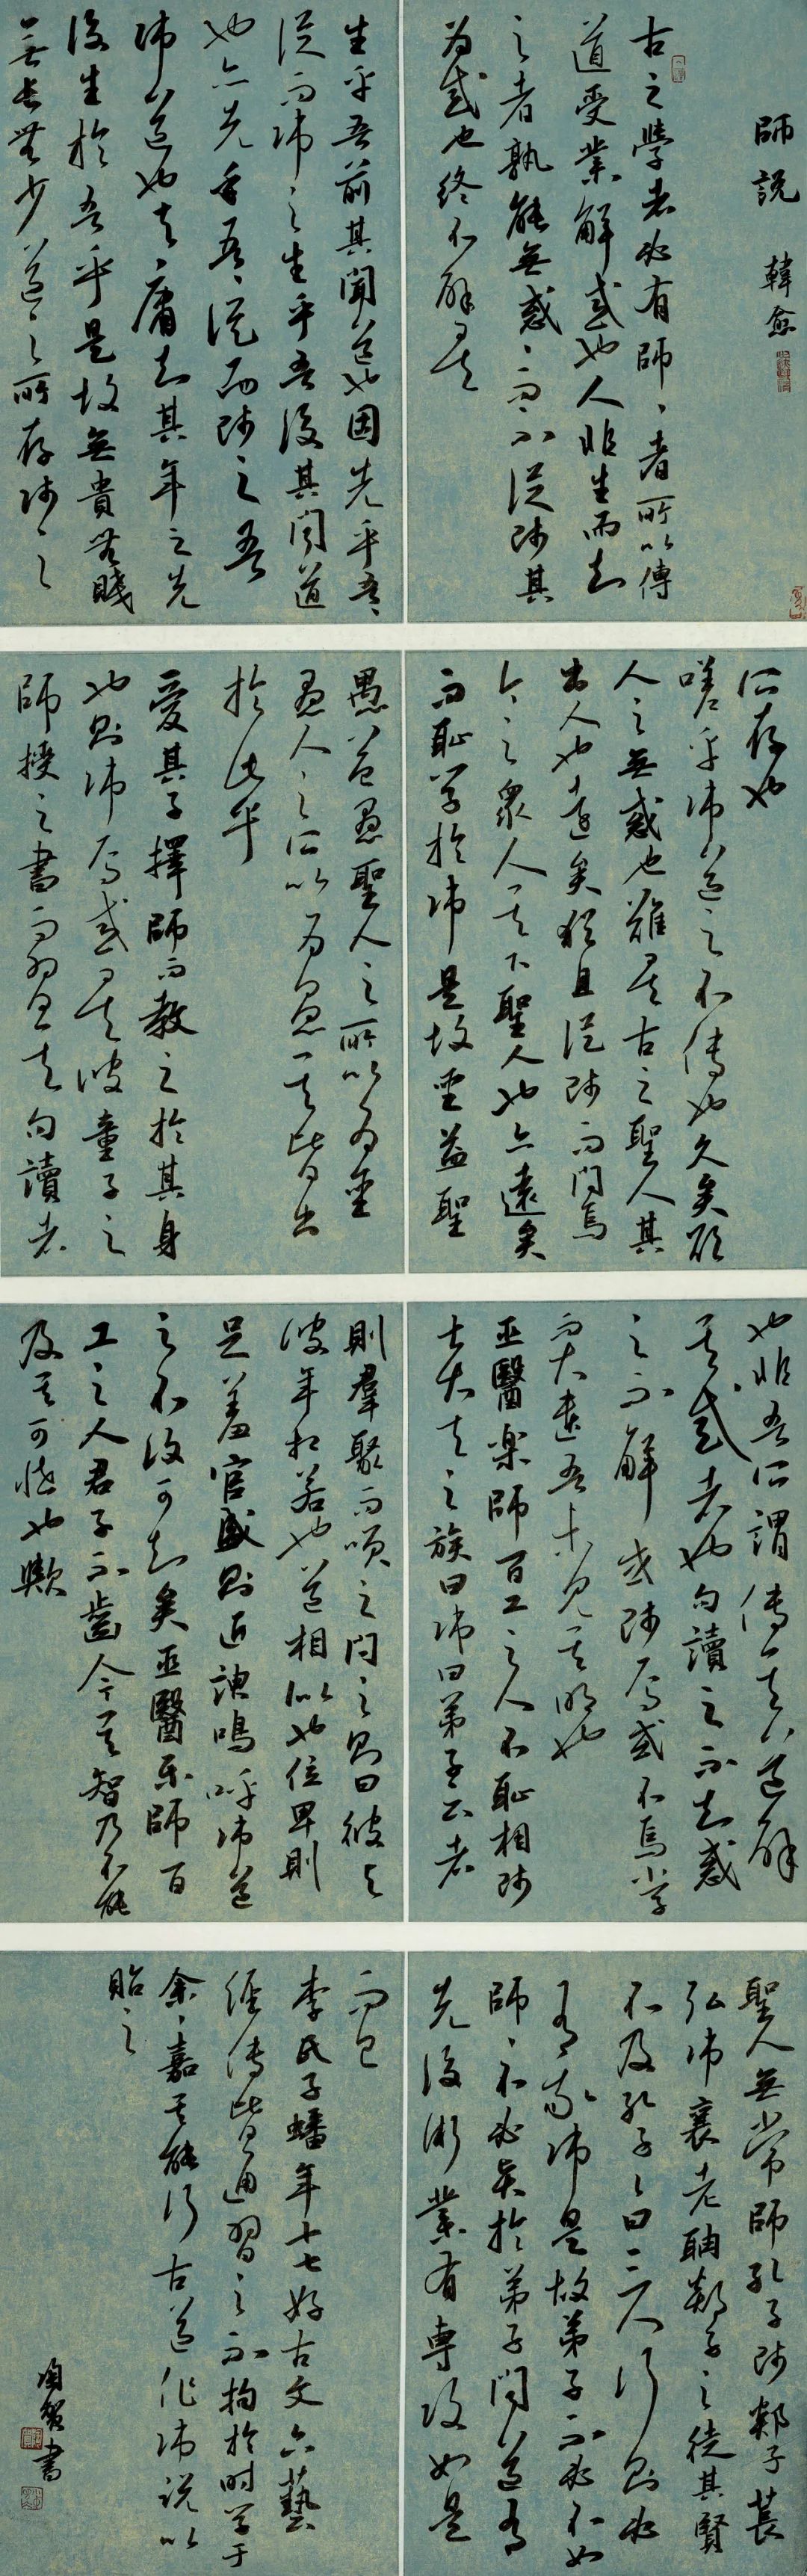 師說 韓愈
古之學者必有師、者所以傳
道受業解惑也人非生而知
之者孰能無惑、而不從師其
為惑也終不解矣
生乎吾前其聞道也因先乎吾、
從而師之生乎吾後其聞道
也亦先乎吾、從而師之吾
師道也夫、庸知其年之先
後生於吾乎是故無貴無賤
無長無少道之所存師之
所存也
嗟乎師道之不傳也久矣欲
人之無惑也難矣古之聖人其
出人也遠矣猶且從師而問焉
今之眾人其下聖人也亦遠矣
而恥學於師是故聖益聖
愚益愚聖人之所以為聖
愚人之所以為愚其皆出
於此乎
愛其子擇師而教之於其身
也則師焉惑矣彼童子之
師授之書而習其句讀者
也非吾所謂傳其道解
其惑者也句讀之不知惑
之不解或師焉或不焉小學
而大遺吾未見其明也
巫醫樂師百工之人不恥相師
士大夫之族曰師曰弟子云者
則群聚而笑之問之則曰彼與
彼年相若也道相似也位卑則
足羞官盛則近諛嗚呼師道
之不復可知矣巫醫樂師百
工之人君子不齒今其智乃不能
及其可怪也歟
聖人無常師孔子師郯子萇
弘師襄老聃郯子之徒其賢
不及孔子、曰三人行則必
有我師是故弟子不必不如
師、不必賢於弟子聞道有
先後術業有專攻如是
而已
李氏子蟠年十七好古文六藝
經傳皆通習之不拘於時學于
余、嘉其能行古道作師說以
貽之
書